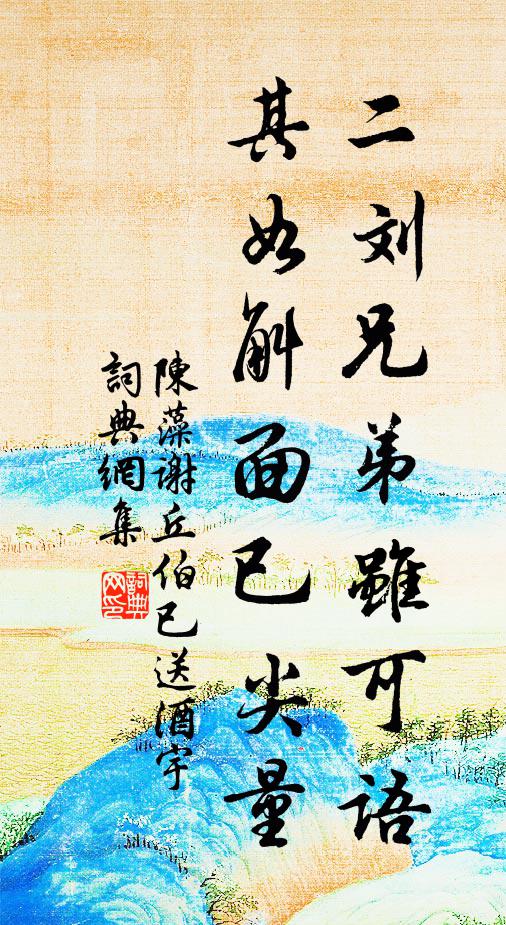 二刘兄弟雖可語
其如斛面已尖量
陳藻謝丘伯已送酒宇
詞典網集
詞典網印